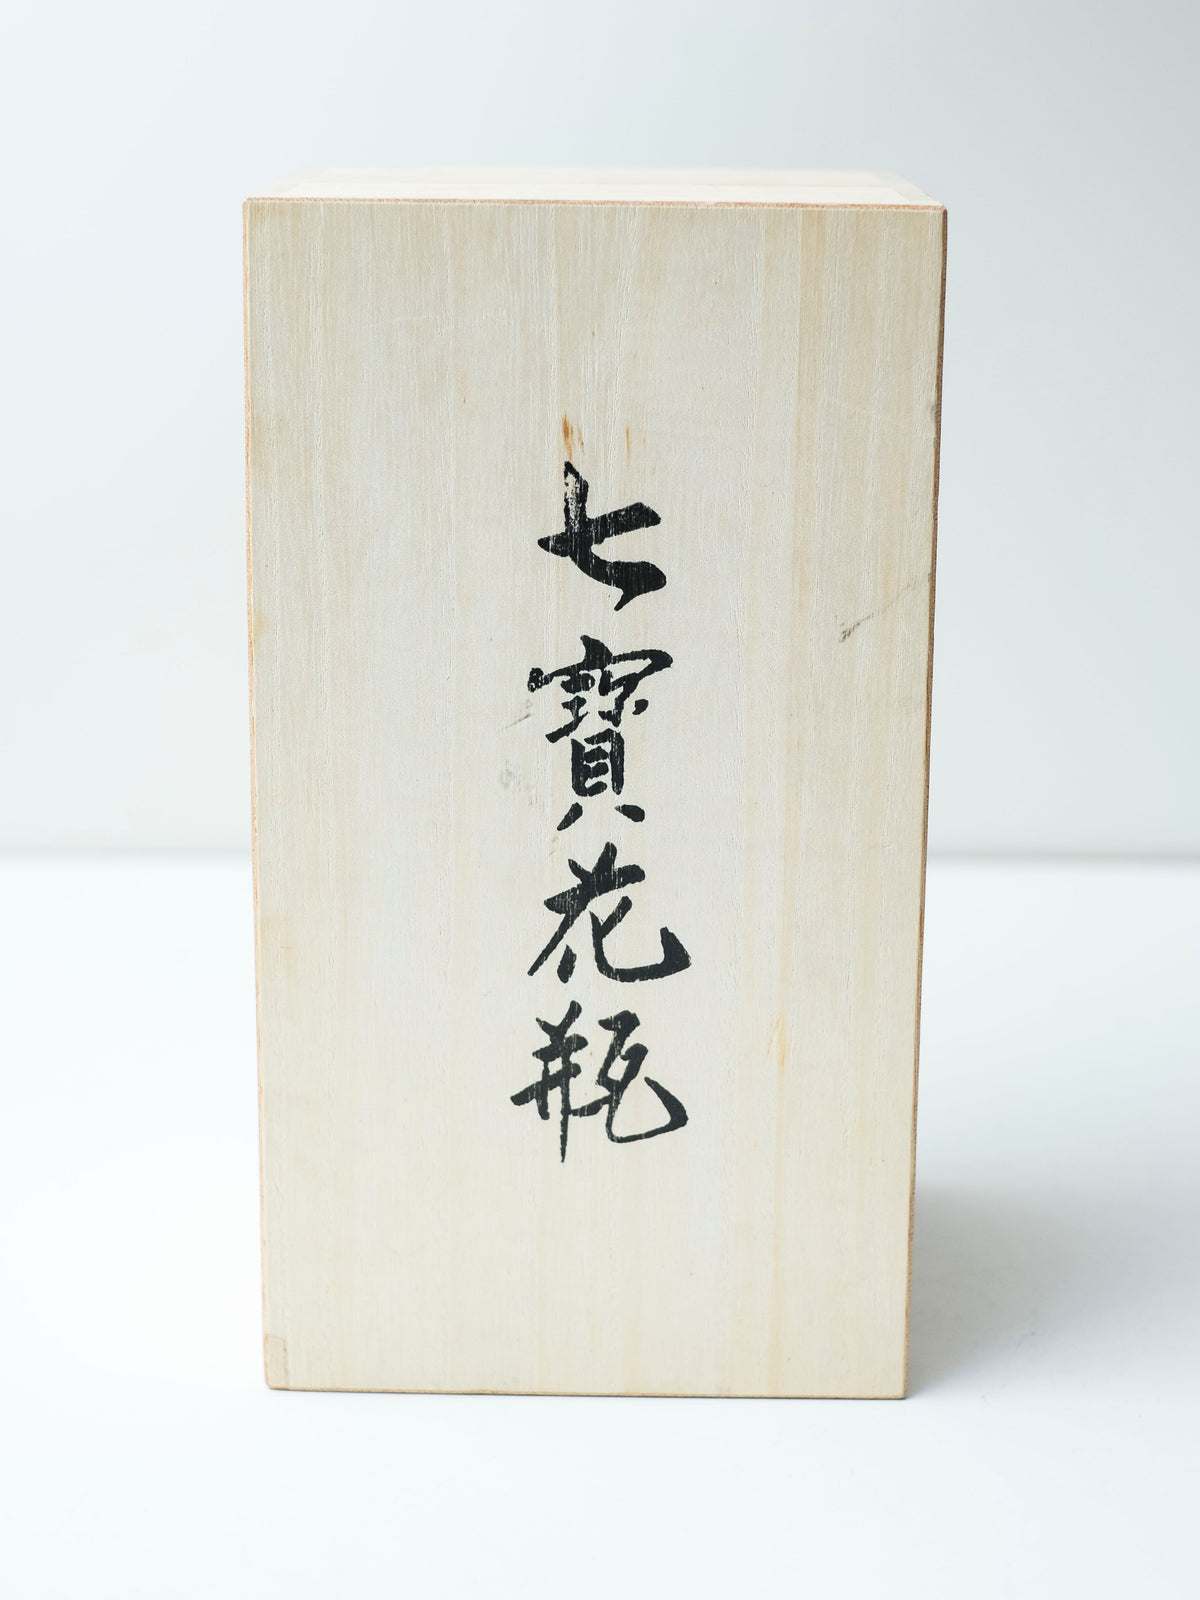 七寶花瓶